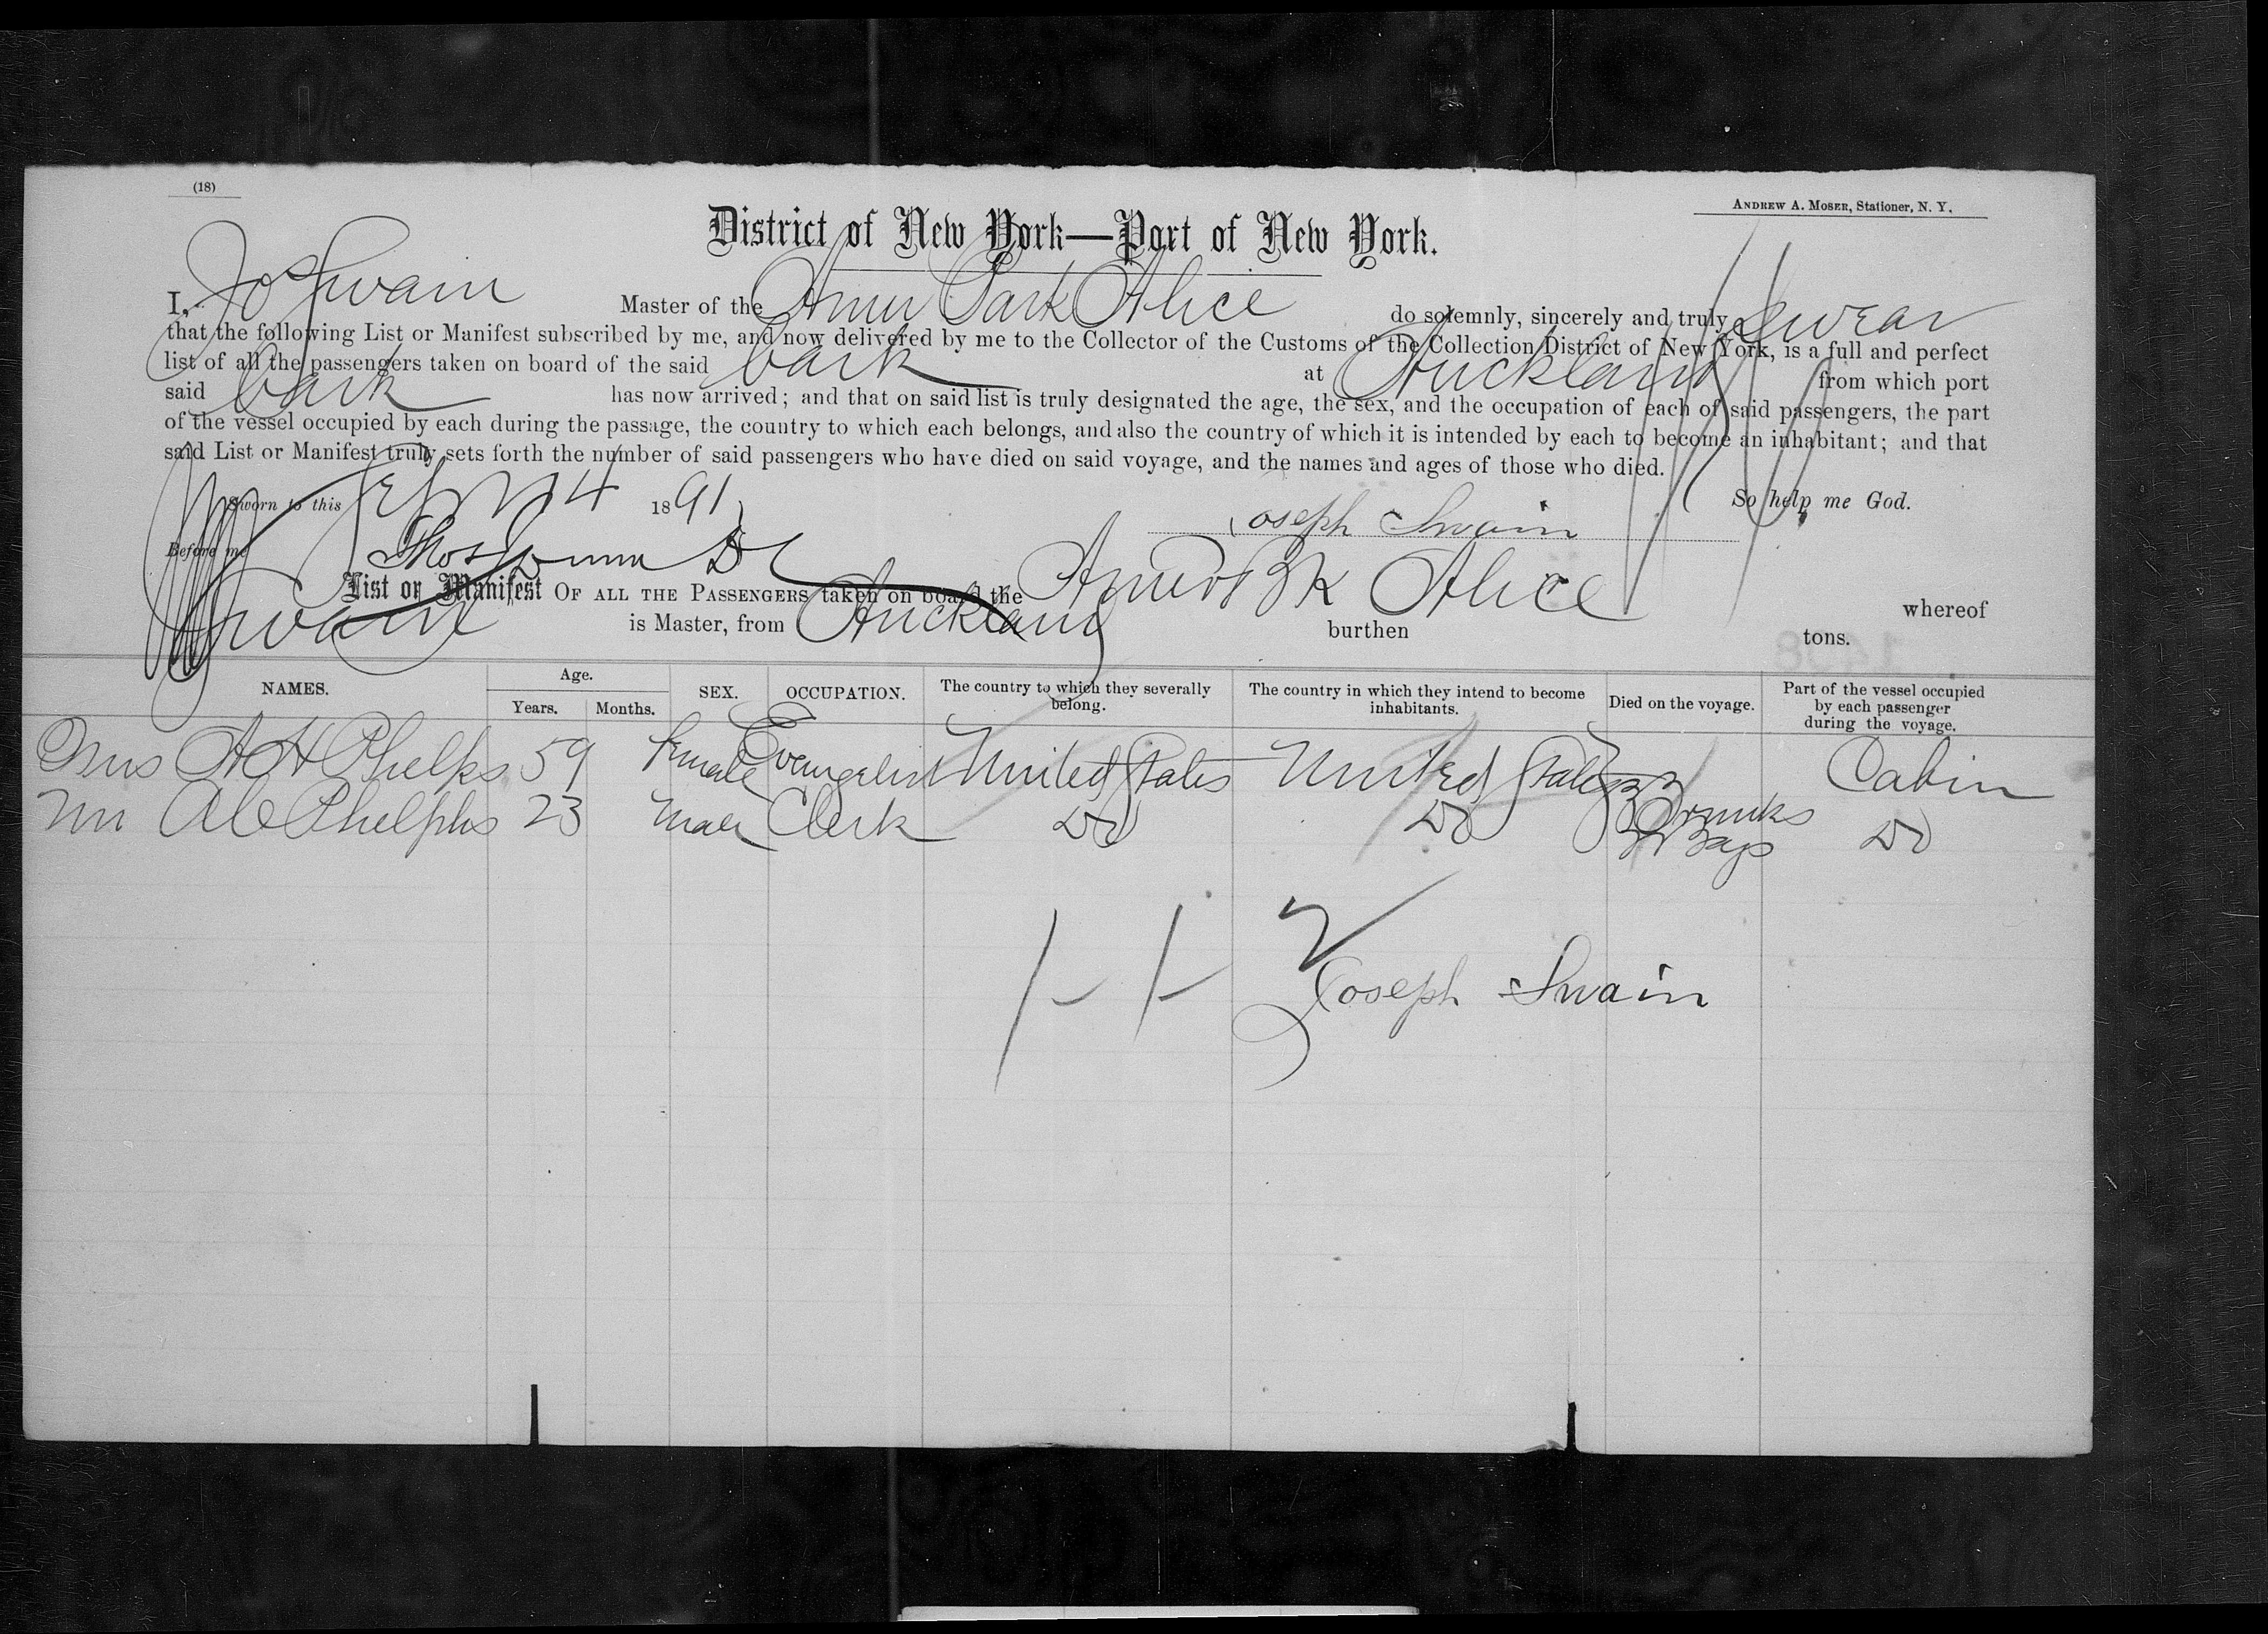 (18)
ANDREW A. MOSER, Stationer, N. Y.
District of New York—Port of New York.
I, Jos Swain Master of the Amer Bark Alice do solemnly, sincerely and truly swear
that the following List or Manifest subscribed by me, and now delivered by me to the Collector of the Customs of the Collection District of New York, is a full and perfect
list of all the passengers taken on board of the said bark at Auckland from which port
said bark has now arrived; and that on said list is truly designated the age, the sex, and the occupation of each of said passengers, the part
of the vessel occupied by each during the passage, the country to which each belongs, and also the country of which it is intended by each to become an inhabitant; and that
said List or Manifest truly sets forth the number of said passengers who have died on said voyage, and the names and ages of those who died.
Sworn to this 14 1891 So help me God.
Joseph Swain
Before me Thos Dunn
List or Manifest OF ALL THE PASSENGERS taken on board the Amer Bk Alice whereof
Swain is Master, from Auckland burthen tons.
NAMES. Age. Years. Months. SEX. OCCUPATION. The country to which they severally belong. The country in which they intend to become inhabitants. Died on the voyage. Part of the vessel occupied by each passenger during the voyage.
Mrs A H Phelps 59 Female Evangelist United States United States Cabin
Mr A C Phelphs 23 Male Clerk Do Do 3 Trunks Do
3 Bags
1 - 1 - 2
Joseph Swain